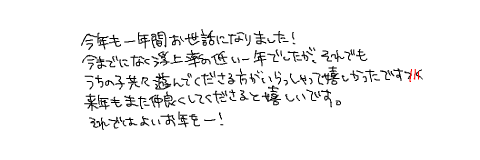 今年も一年間お世話になりました!
今までになく浮上率の低い一年でしたが、それでも
うちの子共々遊んでくださる方がいらっしゃって嬉しかったです
来年もまた仲良くしてくださると嬉しいです。
それではよいお年をー!